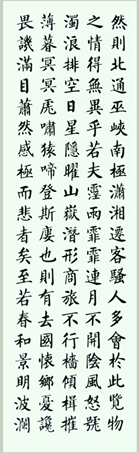 然則北通巫峽南極瀟湘遷客騷人多會於此覽物
之情得無異乎若夫霪雨霏霏連月不開陰風怒號
濁浪排空日星隱曜山嶽潛形商旅不行檣傾楫摧
薄暮冥冥虎嘯猿啼登斯樓也則有去國懷鄉憂讒
畏譏滿目蕭然感極而悲者矣至若春和景明波瀾